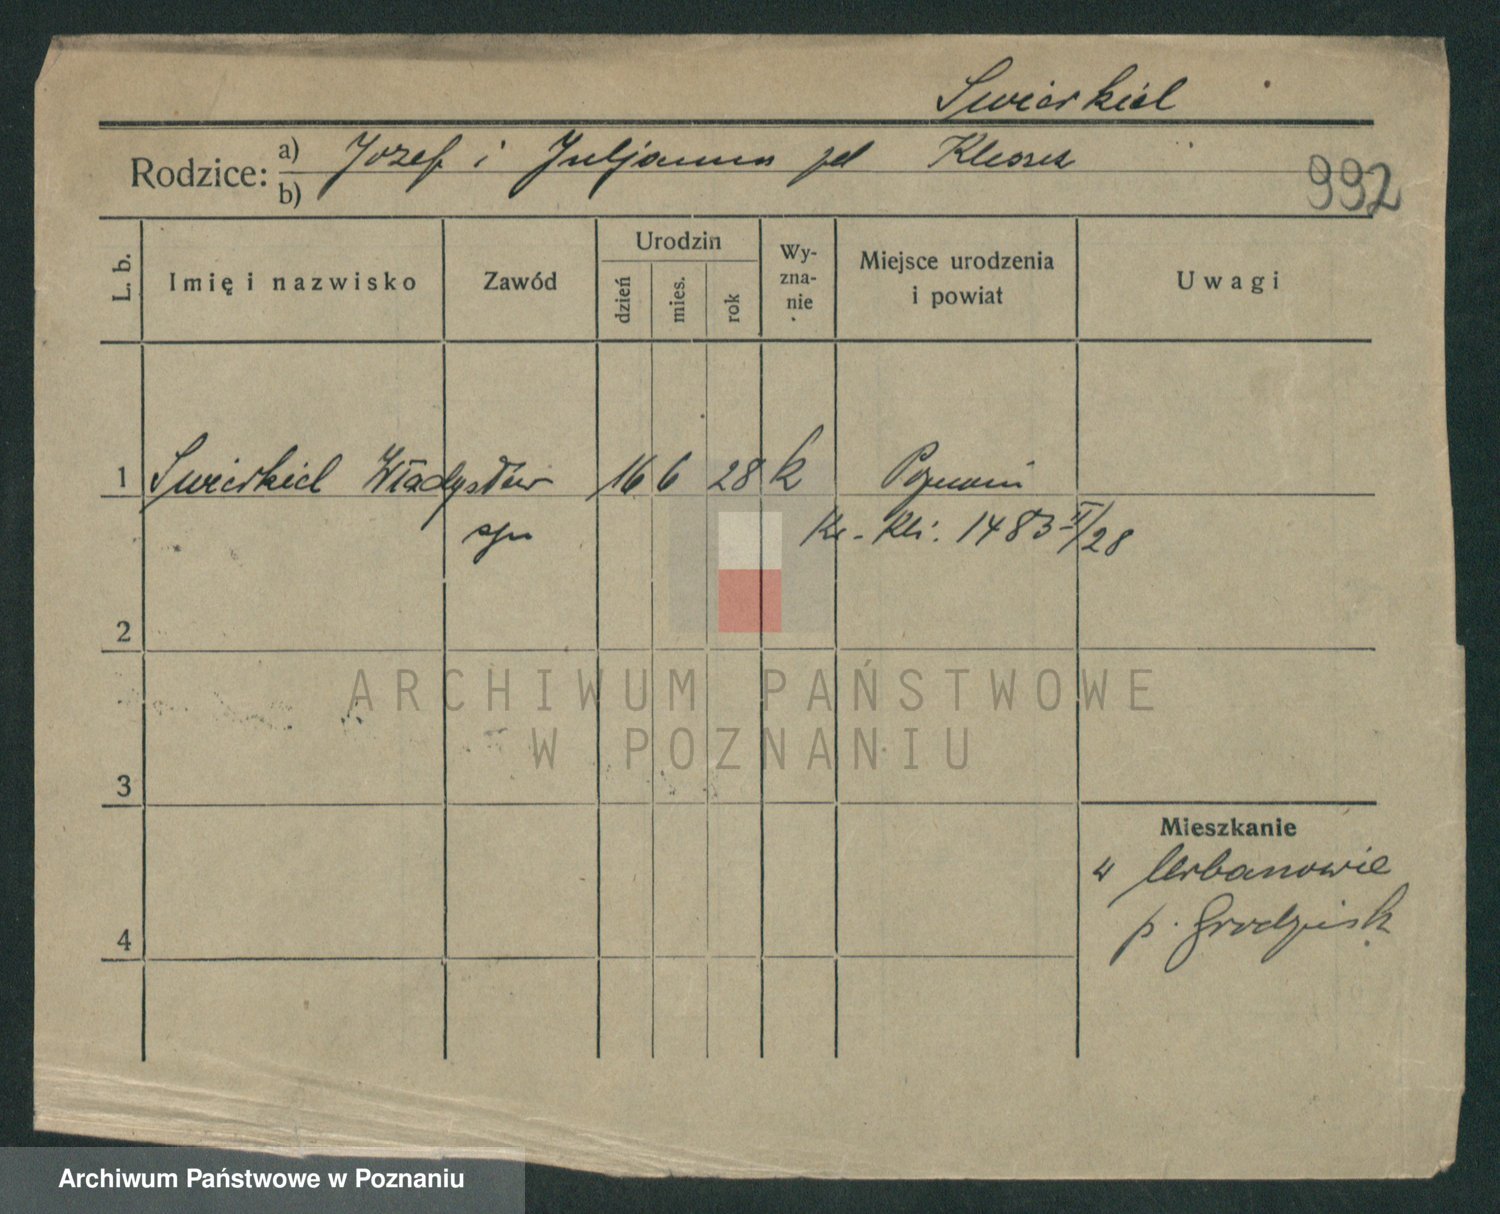 Swierkiel
Rodzice: a) Józef i Juljanna
b)
992
L. b.
Imię i nazwisko
Zawód
Urodzin
dzień
mies.
rok
Wy-
zna-
nie
Miejsce urodzenia
i powiat
Uwagi
1 Swierkiel Władysław 16 6 28 k Poznań
syn
Kli. 1483 II/28
2
ARCHIWUM PAŃSTWOWE
W POZNANIU
3
Mieszkanie
w Urbanowie
4
p. Grodzisk
Archiwum Państwowe w Poznaniu